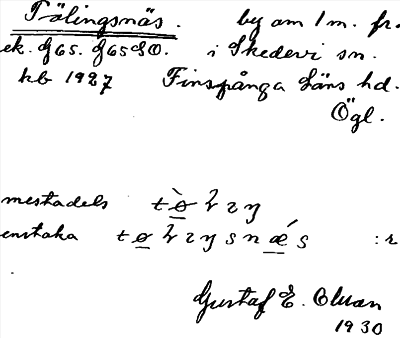 Tölingsnäs. by om 1 m. fr.
ek. G65. G65SO. i Skedevi sn.
kb 1927 Finspånga läns hd.
Ögl.
mestadels
enstaka :r
Gustaf E. Olsson
1930